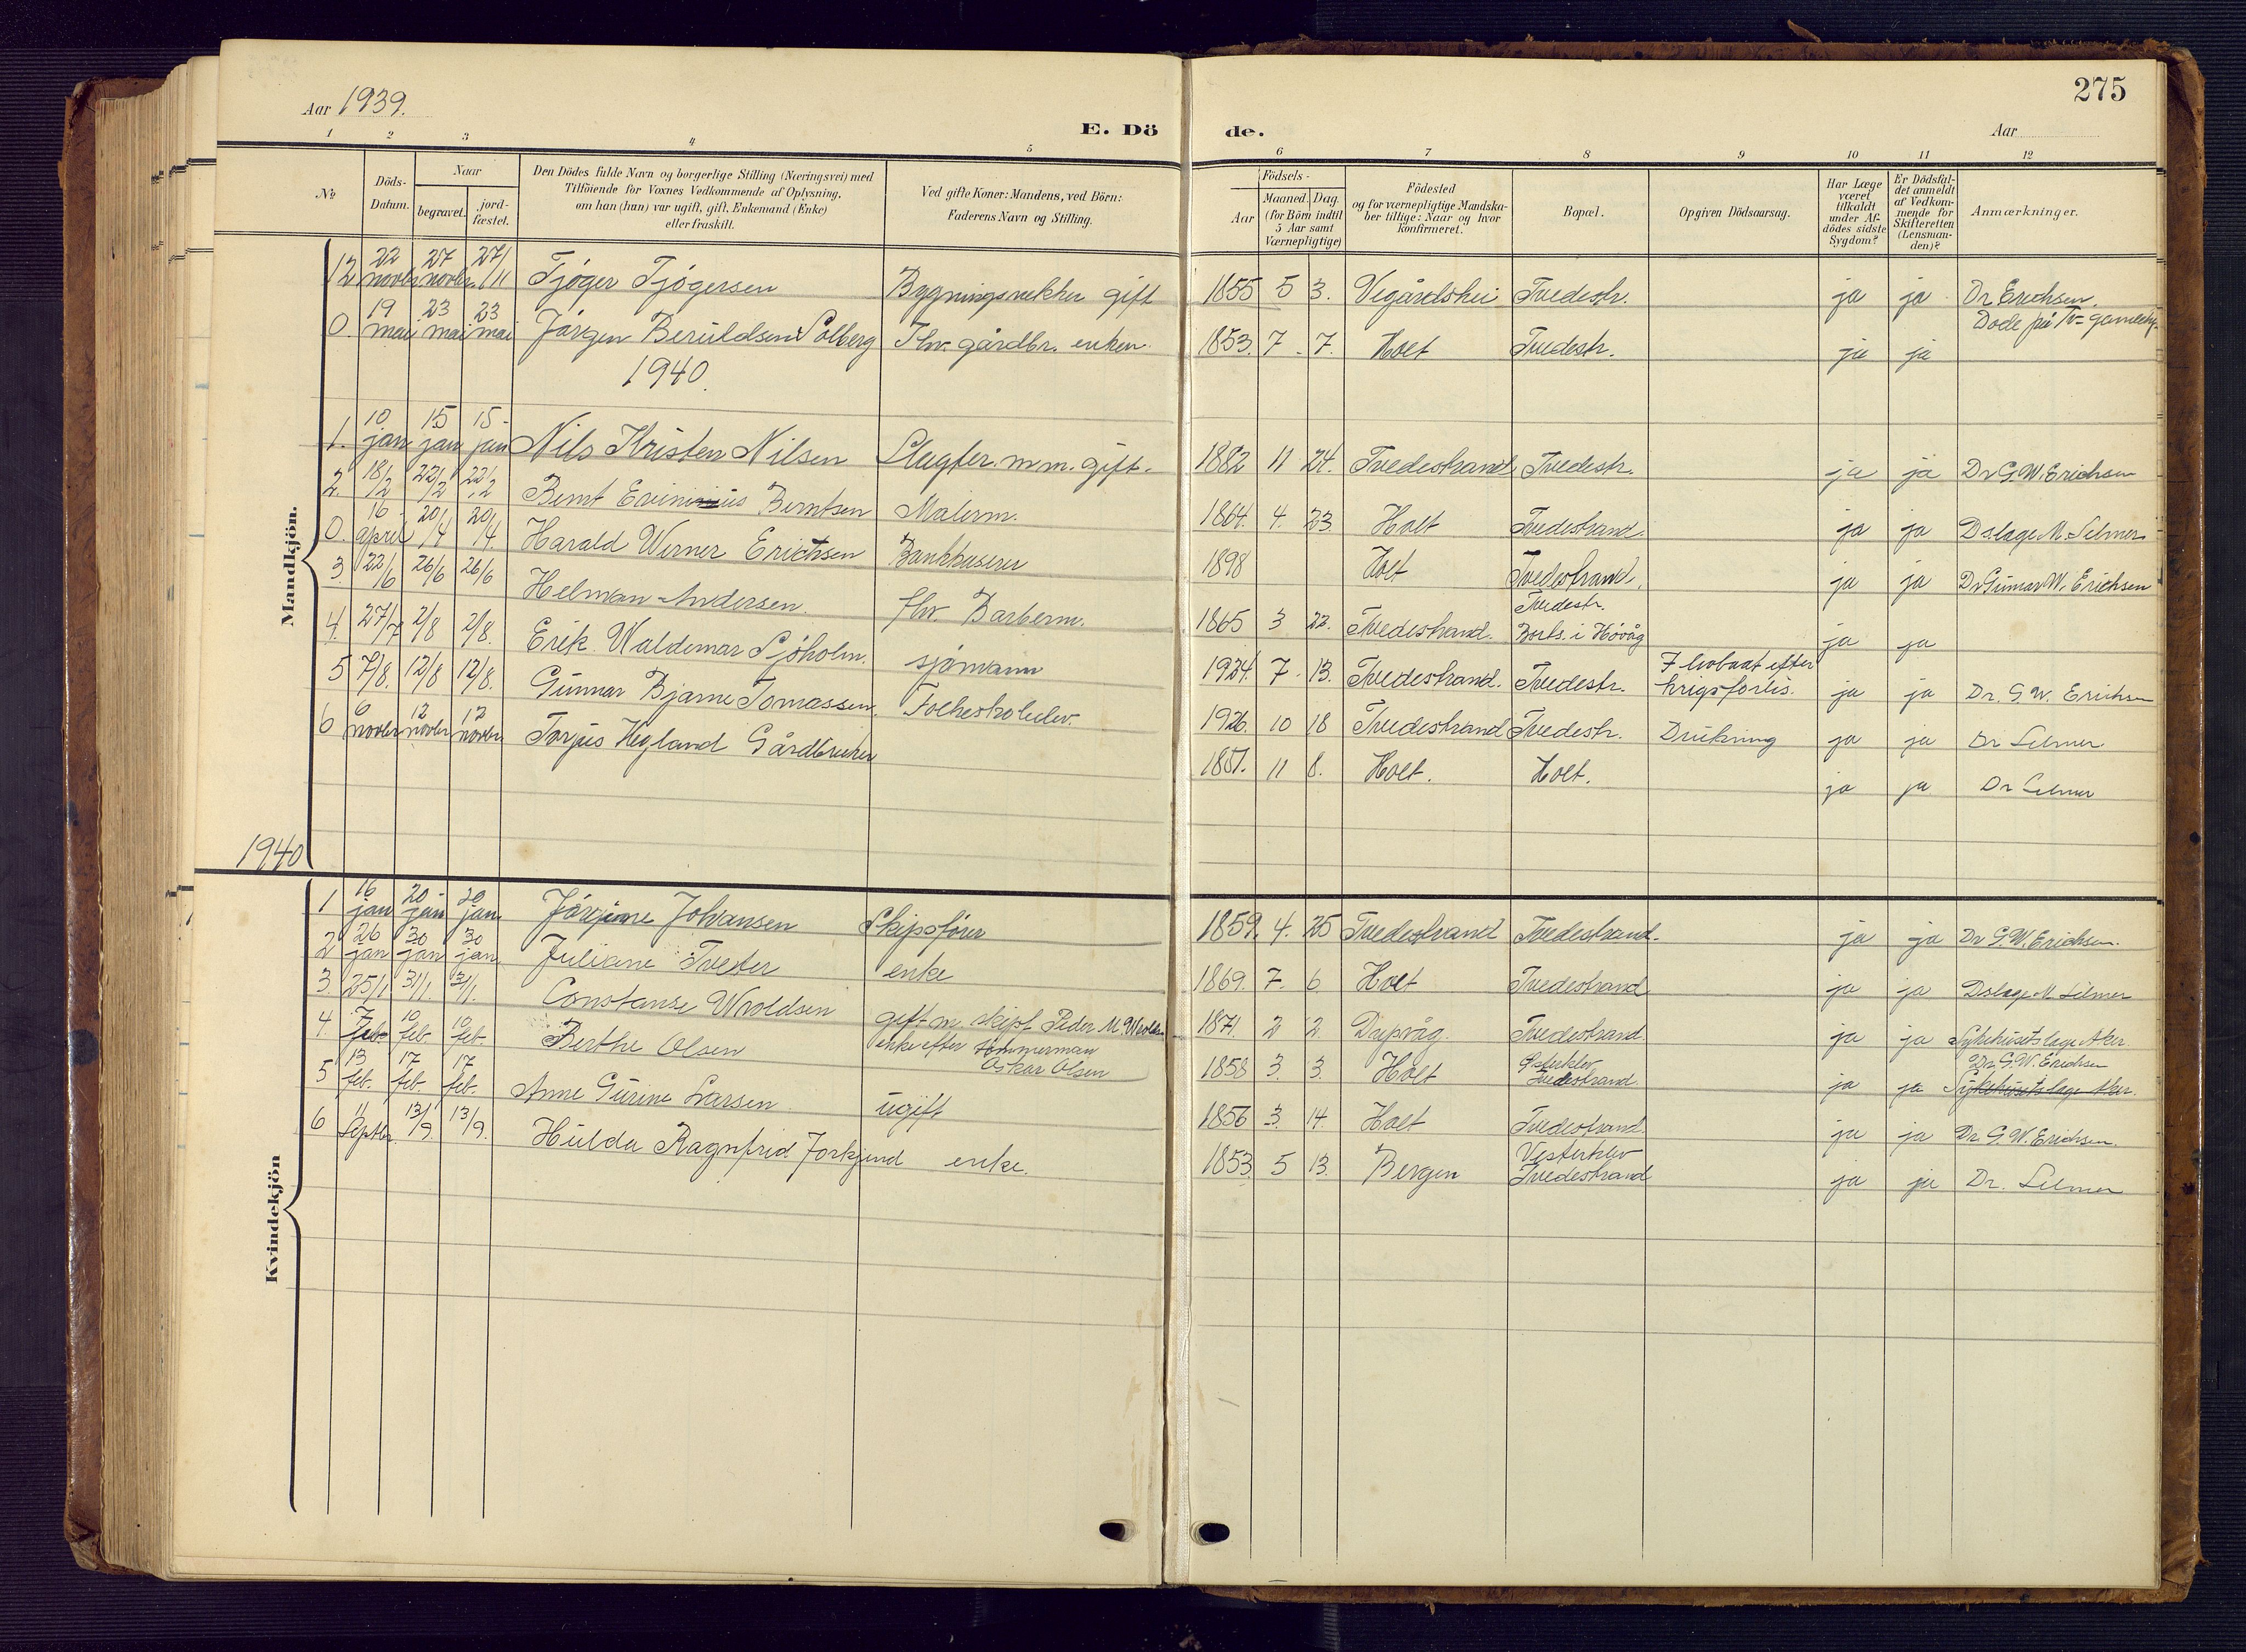 Aar 1939.
E. Dö
de.
Aar
275
1 2 3 4 5 6 7 8 9 10 11 12
No
Döds-Datum.
Naar
begravet.
jord-fæstet.
Den Dödes fulde Navn og borgerlige Stilling (Næringsvei) med
Tilföiende for Voxnes Vedkommende af Oplysning,
om han (hun) var ugift, gift, Enkemand (Enke)
eller fraskilt.
Ved gifte Koner: Mandens, ved Börn:
Faderens Navn og Stilling.
Födsels-
Aar
Maaned. Dag.
(for Börn indtil
5 Aar samt
Værnepligtige)
Födested
og for værnepligtige Mandska-
ber tillige: Naar og hvor
konfirmeret.
Bopæl.
Opgiven Dödsaarsag.
Har Læge
været
tilkaldt
under Af-
dödes sidste
Sygdom?
Er Dödsfal-
det anmeldt
af Vedkom-
mende for
Skifteretten
(Lensman-
den)?
Anmærkninger.
Mandkjön.
12 22 novbr 27 novbr. 27/11 Tjöger Tjögersen Bygningsvekter gift 1855 5 3. Vegårdshei Tvedestr. ja ja Dr Erichsen.
0. 19 mai 23 mai 23 mai Jörgen Beruldsen Solberg Fhv. gårdbr. enkem. 1853. 7. 7. Holt Tvedestr. ja ja Døde på Tv=gamlehj.
1940.
1. 10 jan 15 jan 15 jan Nils Kristen Nilsen Slagter m.m. gift. 1882 11 24. Tvedestrand Tvedestr. ja ja Dr G.W. Erichsen
2. 18/2 22/2 22/2 Bernt Berntsen Malerm. 1864. 4. 23 Holt Tvedestrand. ja ja Dslæge M. Selmer
0. 16 april 20/4 20/4. Harald Werner Erichsen Bankkaserer 1898 Holt Tvedestrand. ja ja Dr Gunnar W. Erichsen
3 22/6 26/6 26/6 Helman Andersen. fhv. Barberm. 1865 3 22. Tvedestrand. Tvedestr. Borts. i Høvåg ja ja
4. 27/7 2/8 2/8. Erik Waldemar Sjöholm. sjömann 1924. 7. 13. Tvedestrand. Tvedestr. I livbaat efter krigsforlis. ja ja Dr. G.W. Erichsen
5 7/8. 12/8 12/8. Gunnar Bjarne Tomassen. Folkeskoleelev. 1926. 10 18 Tvedestrand Tvedestr. Drukning ja ja Dr Selmer
6 6 novbr 12 novbr 12 novbr. Torjus Hegland Gårdbruker 1851. 11 8. Holt. Holt. ja ja Dr Selmer
1940
Kvindekjön
1 16 jan 20 jan 20 jan. Jörgine Johansen Skipsfører 1859. 4. 25 Tvedestrand Tvedestrand. ja ja Dr G.W. Erichsen.
2 26 jan 30 jan 30 jan. Juliane Tveter enke 1869. 7. 6 Holt Tvedestrand ja ja Dslæge M. Selmer
3. 25/1 31/1. 31/1. Constanse Wroldsen gift m. skipf. Peder M. Wroldsen 1871. 2 2. Dypvåg. Tvedestrand. ja ja Sykehuslæge Aker.
4 7 feb. 10 feb. 10 feb. Berthe Olsen enke efter tømmerman Oskar Olsen 1858 3. 3. Holt Østerklev Tvedestrand. ja ja Dr. G.W. Erichsen Sykehuslæge Aker.
5 13 feb. 17 feb. 17 feb. Anne Gurine Larsen ugift 1856 3. 14. Holt Tvedestrand. ja ja Dr. G.W. Erichsen.
6 11 Septbr. 13/9 13/9. Hulda Ragnfrid Forkjend enke. 1853. 5 13. Bergen Vesterklev Tvedestrand ja ja Dr. Selmer